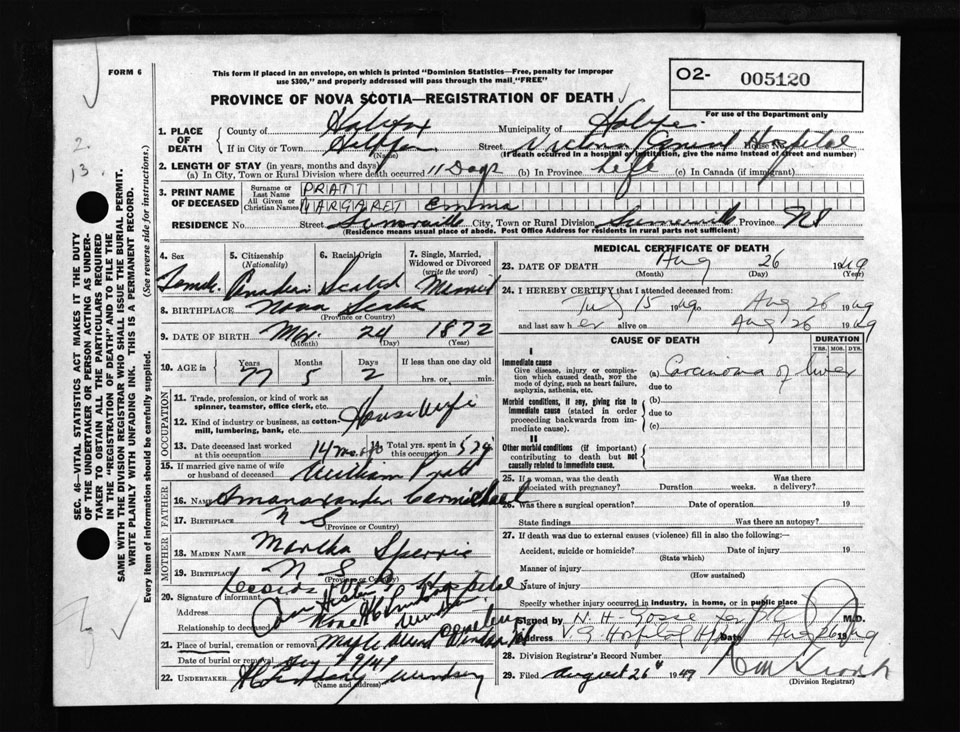 FORM 6
This form if placed in an envelope, on which is printed "Dominion Statistics—Free, penalty for improper
use $300," and properly addressed will pass through the mail "FREE"
O2- 005120
For use of the Department only
PROVINCE OF NOVA SCOTIA—REGISTRATION OF DEATH
2.
13.
SEC. 46—VITAL STATISTICS ACT MAKES IT THE DUTY
OF THE UNDERTAKER OR PERSON ACTING AS UNDER-
TAKER TO OBTAIN ALL THE PARTICULARS REQUIRED
IN THE "REGISTRATION OF DEATH" AND TO FILE THE
SAME WITH THE DIVISION REGISTRAR WHO SHALL ISSUE THE BURIAL PERMIT.
WRITE PLAINLY WITH UNFADING INK. THIS IS A PERMANENT RECORD.
Every item of information should be carefully supplied. (See reverse side for instructions.)
1. PLACE OF DEATH County of Halifax Municipality of Halifax
If in City or Town Halifax (Name) Street Victoria General Hospital House No.
(If death occurred in a hospital or institution, give the name instead of street and number)
2. LENGTH OF STAY (in years, months and days)
(a) In City, Town or Rural Division where death occurred 11 Days (b) In Province Life (c) In Canada (if immigrant)
3. PRINT NAME OF DECEASED Surname or Last Name PRATT
All Given or Christian Names MARGARET Emma
RESIDENCE No. Street Summerville City, Town or Rural Division Summerville Province NS
(Residence means usual place of abode. Post Office Address for residents in rural parts not sufficient)
4. Sex Female
5. Citizenship (Nationality) Canadian
6. Racial Origin Scotch
7. Single, Married, Widowed or Divorced (write the word) Married
8. BIRTHPLACE Nova Scotia
(Province or Country)
9. DATE OF BIRTH Mar. 24 1872
(Month) (Day) (Year)
10. AGE in Years 77 Months 5 Days 2 If less than one day old
hrs. or min.
OCCUPATION
11. Trade, profession, or kind of work as
spinner, teamster, office clerk, etc. Housewife
12. Kind of industry or business, as cotton-
mill, lumbering, bank, etc.
13. Date deceased last worked
at this occupation 14 mo. Total yrs. spent in
this occupation 57
15. If married give name of wife
or husband of deceased William Pratt
FATHER
16. NAME
17. BIRTHPLACE N S
(Province or Country)
MOTHER
18. MAIDEN NAME Martha
19. BIRTHPLACE N S
(Province or Country)
20. Signature of informant Records Hospital
Address
Relationship to deceased
21. Place of burial, cremation or removal
Date of burial or removal
22. UNDERTAKER Windsor
(Name and Address)
MEDICAL CERTIFICATE OF DEATH
23. DATE OF DEATH Aug 26 1949
(Month) (Day) (Year)
24. I HEREBY CERTIFY that I attended deceased from:
July 15 1949 to Aug 26 1949
and last saw her alive on Aug 26 1949
CAUSE OF DEATH DURATION
YRS. MOS. DYS.
I
Immediate cause
Give disease, injury or complica-
tion which caused death, NOT the
mode of dying, such as heart failure,
asphyxia, asthenia, etc.
(a) Carcinoma of
due to
Morbid conditions, if any, giving rise to
immediate cause (stated in order
proceeding backwards from im-
mediate cause).
(b)
due to
(c)
II
Other morbid conditions (if important)
contributing to death but not
causally related to immediate cause.
25. If a woman, was the death
associated with pregnancy? Duration weeks. Was there
a delivery?
26. Was there a surgical operation? Date of operation 19
State findings Was there an autopsy?
27. If death was due to external causes (violence) fill in also the following:—
Accident, suicide or homicide? Date of injury 19
(State which)
Manner of injury
(How sustained)
Nature of injury
Specify whether injury occurred in industry, in home, or in public place
Signed by N. H. Gosse M.D.
Address V G Hospital Date Aug 26 1949
28. Division Registrar's Record Number
29. Filed August 26th 1949
(Division Registrar)